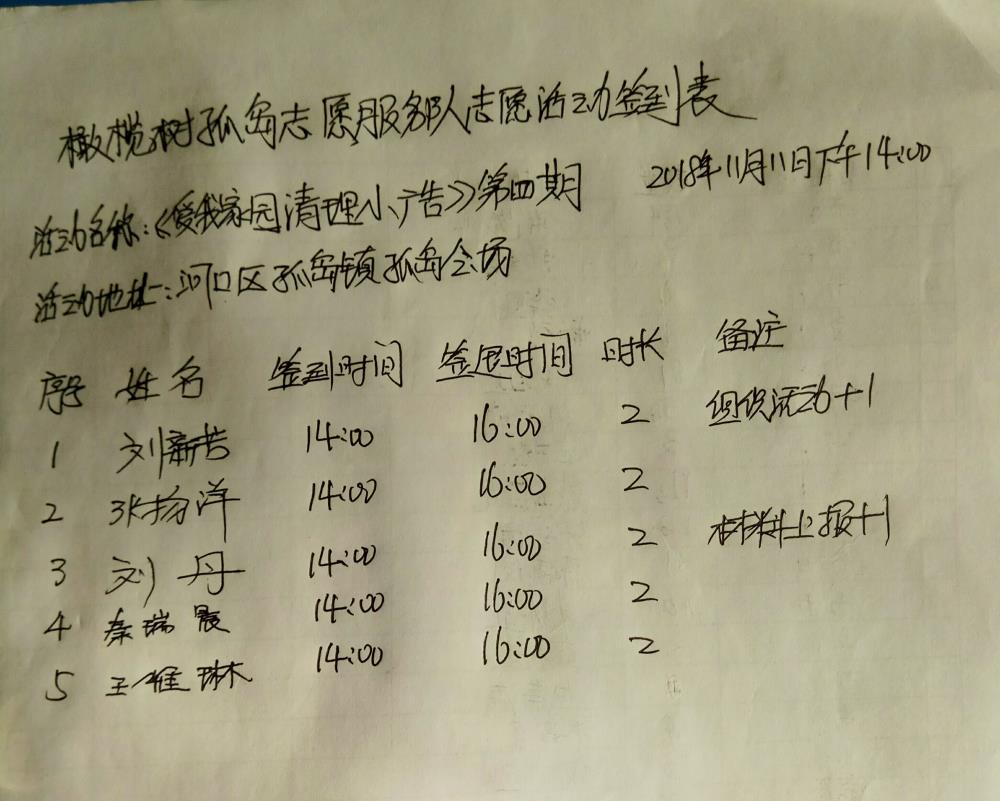 橄榄树孤岛志愿服务队志愿活动签到表
2018年11月11日下午14:00
活动名称:《爱我家园清理小广告》第四期
活动地址:河口区孤岛镇孤岛会场
序号 姓名 签到时间 签退时间 时长 备注
1 刘新芳 14:00 16:00 2 组织活动+1
2 张扬洋 14:00 16:00 2
3 刘丹 14:00 16:00 2 材料上报+1
4 秦瑞晨 14:00 16:00 2
5 王维琳 14:00 16:00 2